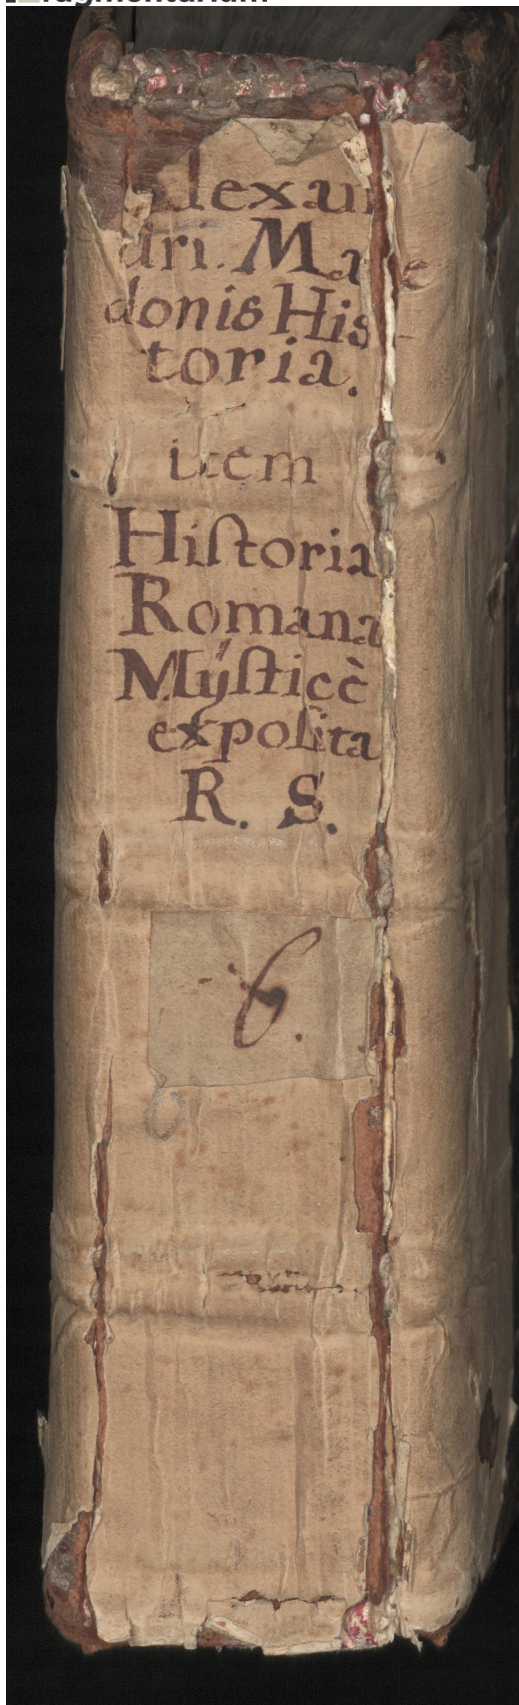 lexan
dri. Mace
donis His-
toria.
item
Hiſtoria
Romana
Mÿſticè
expoſita
R. S.
6.